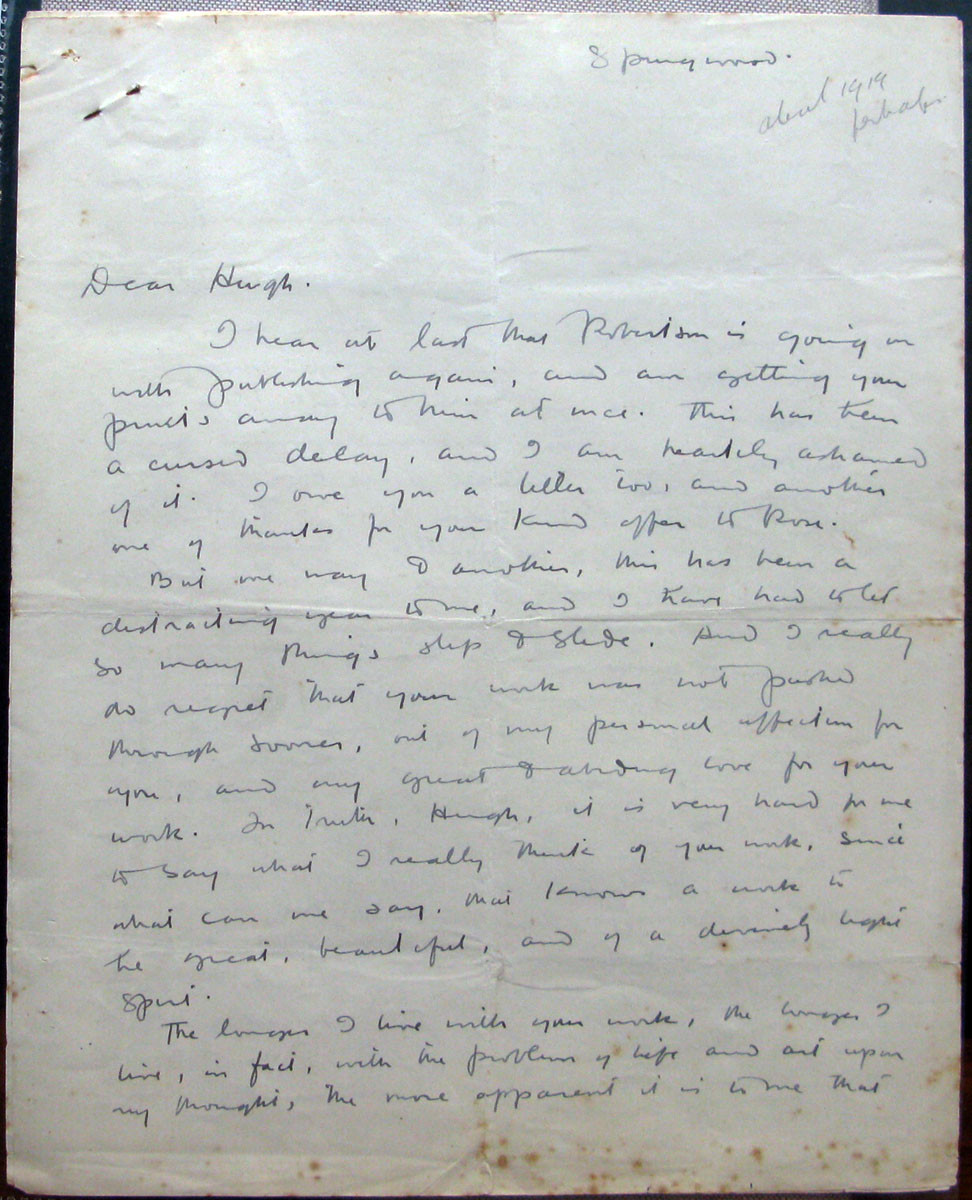 Springwood.
about 1919
perhaps
Dear Hugh.
I hear at last that Robertson is going on
with publishing again, and am getting your
proofs away to him at once. This has been
a cursed delay, and I am heartily ashamed
of it. I owe you a letter too, and another
one of thanks for your kind offer to Rose.
But one way & another, this has been a
distracting year to me, and I have had to let
so many things slip & slide. And I really
do regret that your work was not pushed
through sooner, out of my personal affection for
you, and my great & abiding love for your
work. In truth, Hugh, it is very hard for me
to say what I really think of your work, since
what can one say, that knows a work to
be great, beautiful, and of a divinely light
spirit.
The longer I live with your work, the longer I
live, in fact, with the problem of life and art upon
my thought, the more apparent it is to me that